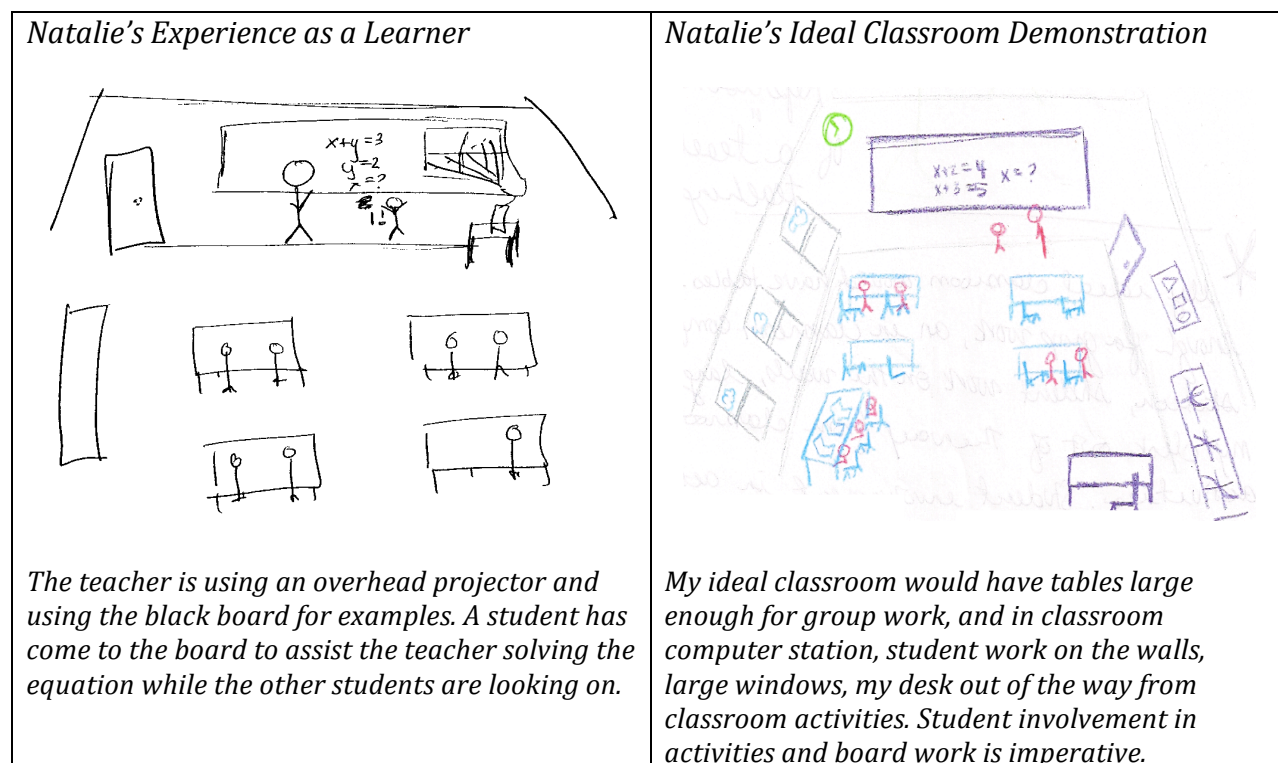 Natalie's Experience as a Learner
x+y=3
y=2
x=?
!!
The teacher is using an overhead projector and
using the black board for examples. A student has
come to the board to assist the teacher solving the
equation while the other students are looking on.
Natalie's Ideal Classroom Demonstration
x+2=4 x=?
x+3=5
My ideal classroom would have tables large
enough for group work, and in classroom
computer station, student work on the walls,
large windows, my desk out of the way from
classroom activities. Student involvement in
activities and board work is imperative.